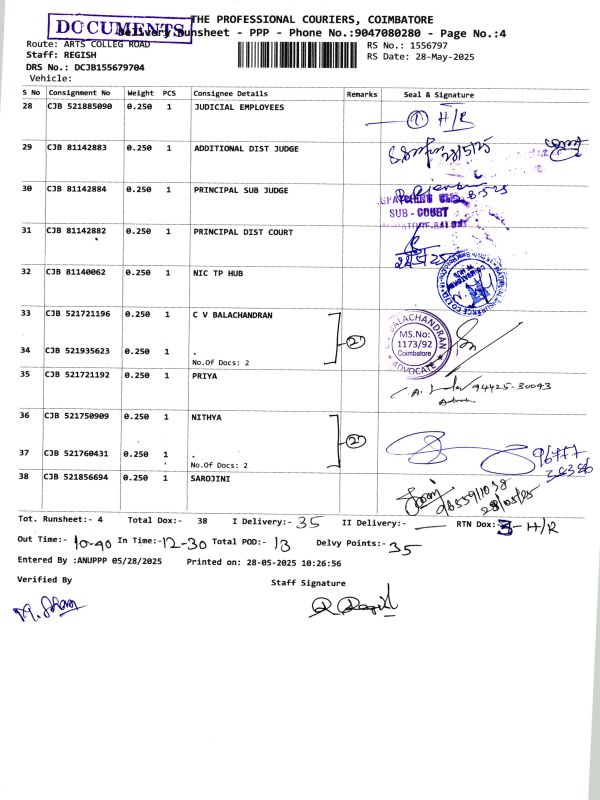 THE PROFESSIONAL COURIERS, COIMBATORE
DOCUMENTS
Delivery Runsheet - PPP - Phone No.:9047080280 - Page No.:4
Route: ARTS COLLEG ROAD
RS No.: 1556797
Staff: REGISH
RS Date: 28-May-2025
DRS No.: DCJB155679704
Vehicle:
S No Consignment No Weight PCS Consignee Details Remarks Seal & Signature
28 CJB 521885090 0.250 1 JUDICIAL EMPLOYEES
① H/R
29 CJB 81142883 0.250 1 ADDITIONAL DIST JUDGE
28/5/25
30 CJB 81142884 0.250 1 PRINCIPAL SUB JUDGE
SUB - COURT
31 CJB 81142882 0.250 1 PRINCIPAL DIST COURT
32 CJB 81140062 0.250 1 NIC TP HUB
33 CJB 521721196 0.250 1 C V BALACHANDRAN
②
BALACHANDRAN
MS.No:
1173/92
Coimbatore
ADVOCATE
34 CJB 521935623 0.250 1 .
No.Of Docs: 2
35 CJB 521721192 0.250 1 PRIYA
94425-30093
36 CJB 521750909 0.250 1 NITHYA
②
37 CJB 521760431 0.250 1 .
No.Of Docs: 2
38 CJB 521856694 0.250 1 SAROJINI
28/05/25
Tot. Runsheet:- 4 Total Dox:- 38 I Delivery:- 35 II Delivery:- — RTN Dox: 3 - H/R
Out Time:- 10-40 In Time:- 12-30 Total POD:- 13 Delvy Points:- 35
Entered By :ANUPPP 05/28/2025 Printed on: 28-05-2025 10:26:56
Verified By
Staff Signature